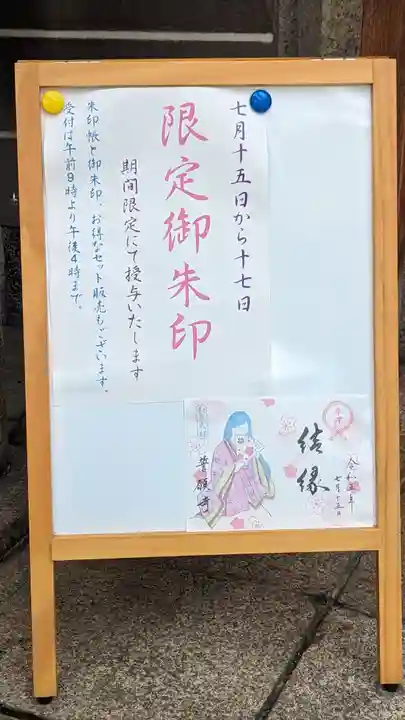 七月十五日から十七日
限定御朱印
期間限定にて授与いたします
朱印帳と御朱印、お得なセット販売もございます。
受付は午前9時より午後4時まで。
令和五年
七月十五日
結縁
誓願寺